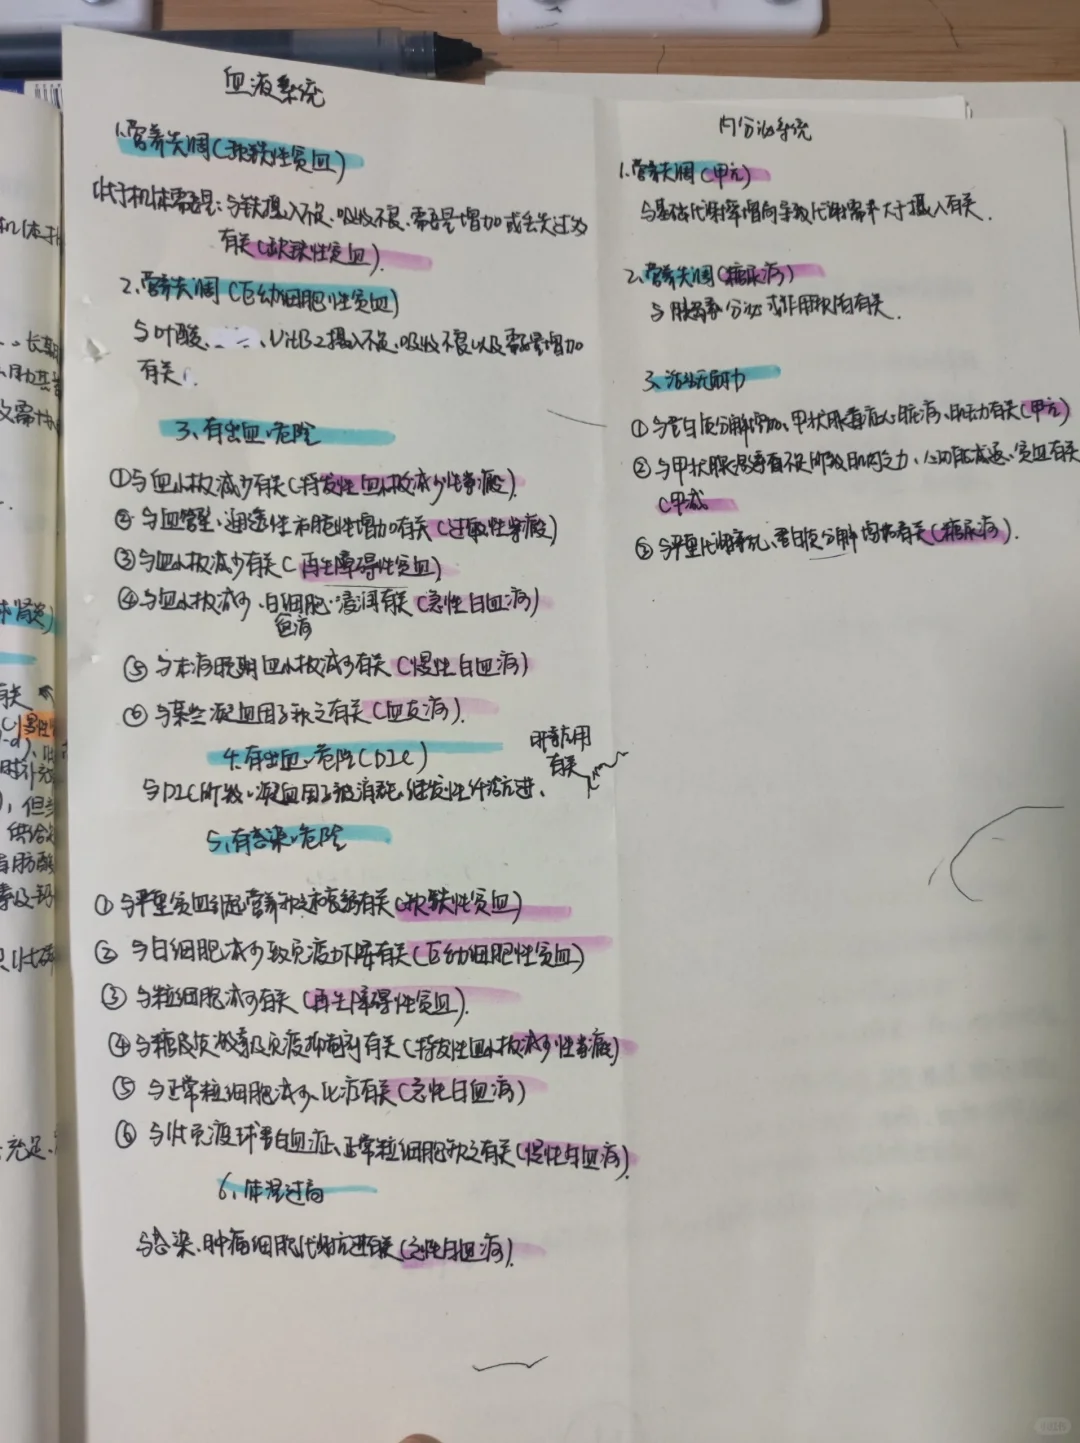 血液系统
1.营养失调(缺铁性贫血)
低于机体需要量:与铁摄入不足、吸收不良、需要量增加或丢失过多
有关(缺铁性贫血).
2.营养失调(巨幼细胞性贫血)
与叶酸、VitB12摄入不足、吸收不良以及需要量增加
有关
3、有出血危险
①与血小板减少有关(特发性血小板减少性紫癜).
②与血管壁通透性和脆性增加有关(过敏性紫癜)
③与血小板减少有关(再生障碍性贫血)
④与血小板减少、白细胞浸润有关(急性白血病)
血病
⑤与本病晚期血小板减少有关(慢性白血病)
⑥与某些凝血因子缺乏有关(血友病).
4.有出血危险(DIC)
与DIC所致凝血因子被消耗、继发性纤溶亢进、
应用
有关
5、有感染危险
①与严重贫血引起营养缺乏和衰弱有关(缺铁性贫血)
②与白细胞减少致免疫力下降有关(巨幼细胞性贫血)
③与粒细胞减少有关(再生障碍性贫血).
④与糖皮质激素及免疫抑制剂有关(特发性血小板减少性紫癜)
⑤与正常粒细胞减少、化疗有关(急性白血病)
⑥与低免疫球蛋白血症、正常粒细胞缺乏有关(慢性白血病).
6、体温过高
与感染、肿瘤细胞代谢亢进有关(急性白血病).
内分泌系统
1.营养失调(甲亢)
与基础代谢率增高导致代谢需求大于摄入有关.
2.营养失调(糖尿病)
与胰岛素分泌或作用缺陷有关.
3、活动无耐力
①与蛋白质分解增加、甲状腺毒症心脏病、肌无力有关(甲亢)
②与甲状腺激素不足所致肌肉乏力、心功能减退、贫血有关
(甲减
③与严重代谢紊乱、蛋白质分解增加有关(糖尿病).